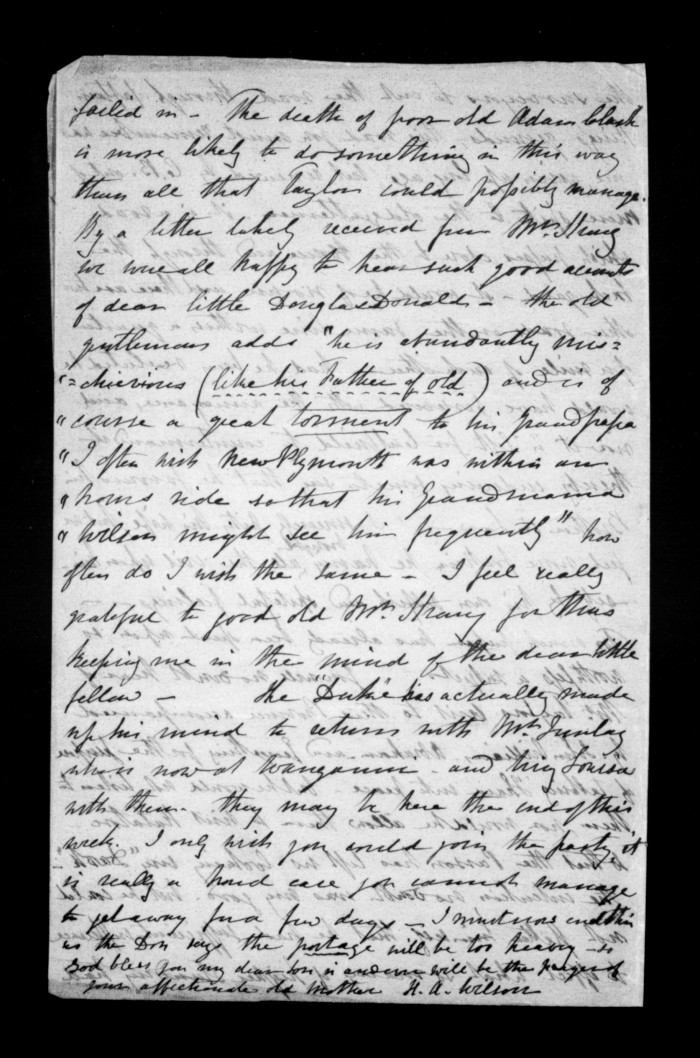 failed in – The death of poor old Adam Clark
is more likely to do something in this way
than all that Taylor could possibly manage.
By a letter lately received from Mr. Strang
we were all happy to hear such good accounts
of dear little Douglas Donald – the old
gentleman adds "he is abundantly mis=
"=chievious (like his Father of old) and is of
"course a great torment to his Grandpapa
"I often wish New Plymouth was within an
"hours ride so that his Grandmama
"Wilson might see him frequently" how
often do I wish the same – I feel really
grateful to good old Mr. Strang for thus
keeping me in the mind of the dear little
fellow – The "Duke" has actually made
up his mind to return with Mr.
who is now at Wanganui – and bring Louisa
with them. they may be here the end of this
week. I only wish you could join the party, it
is really a hard case you cannot manage
to get away for a few days – I must now end this
as the Don says the portage will be too heavy – so
God bless you my dear Son is and ever will be the prayer of
your affectionate old Mother H. A. Wilson